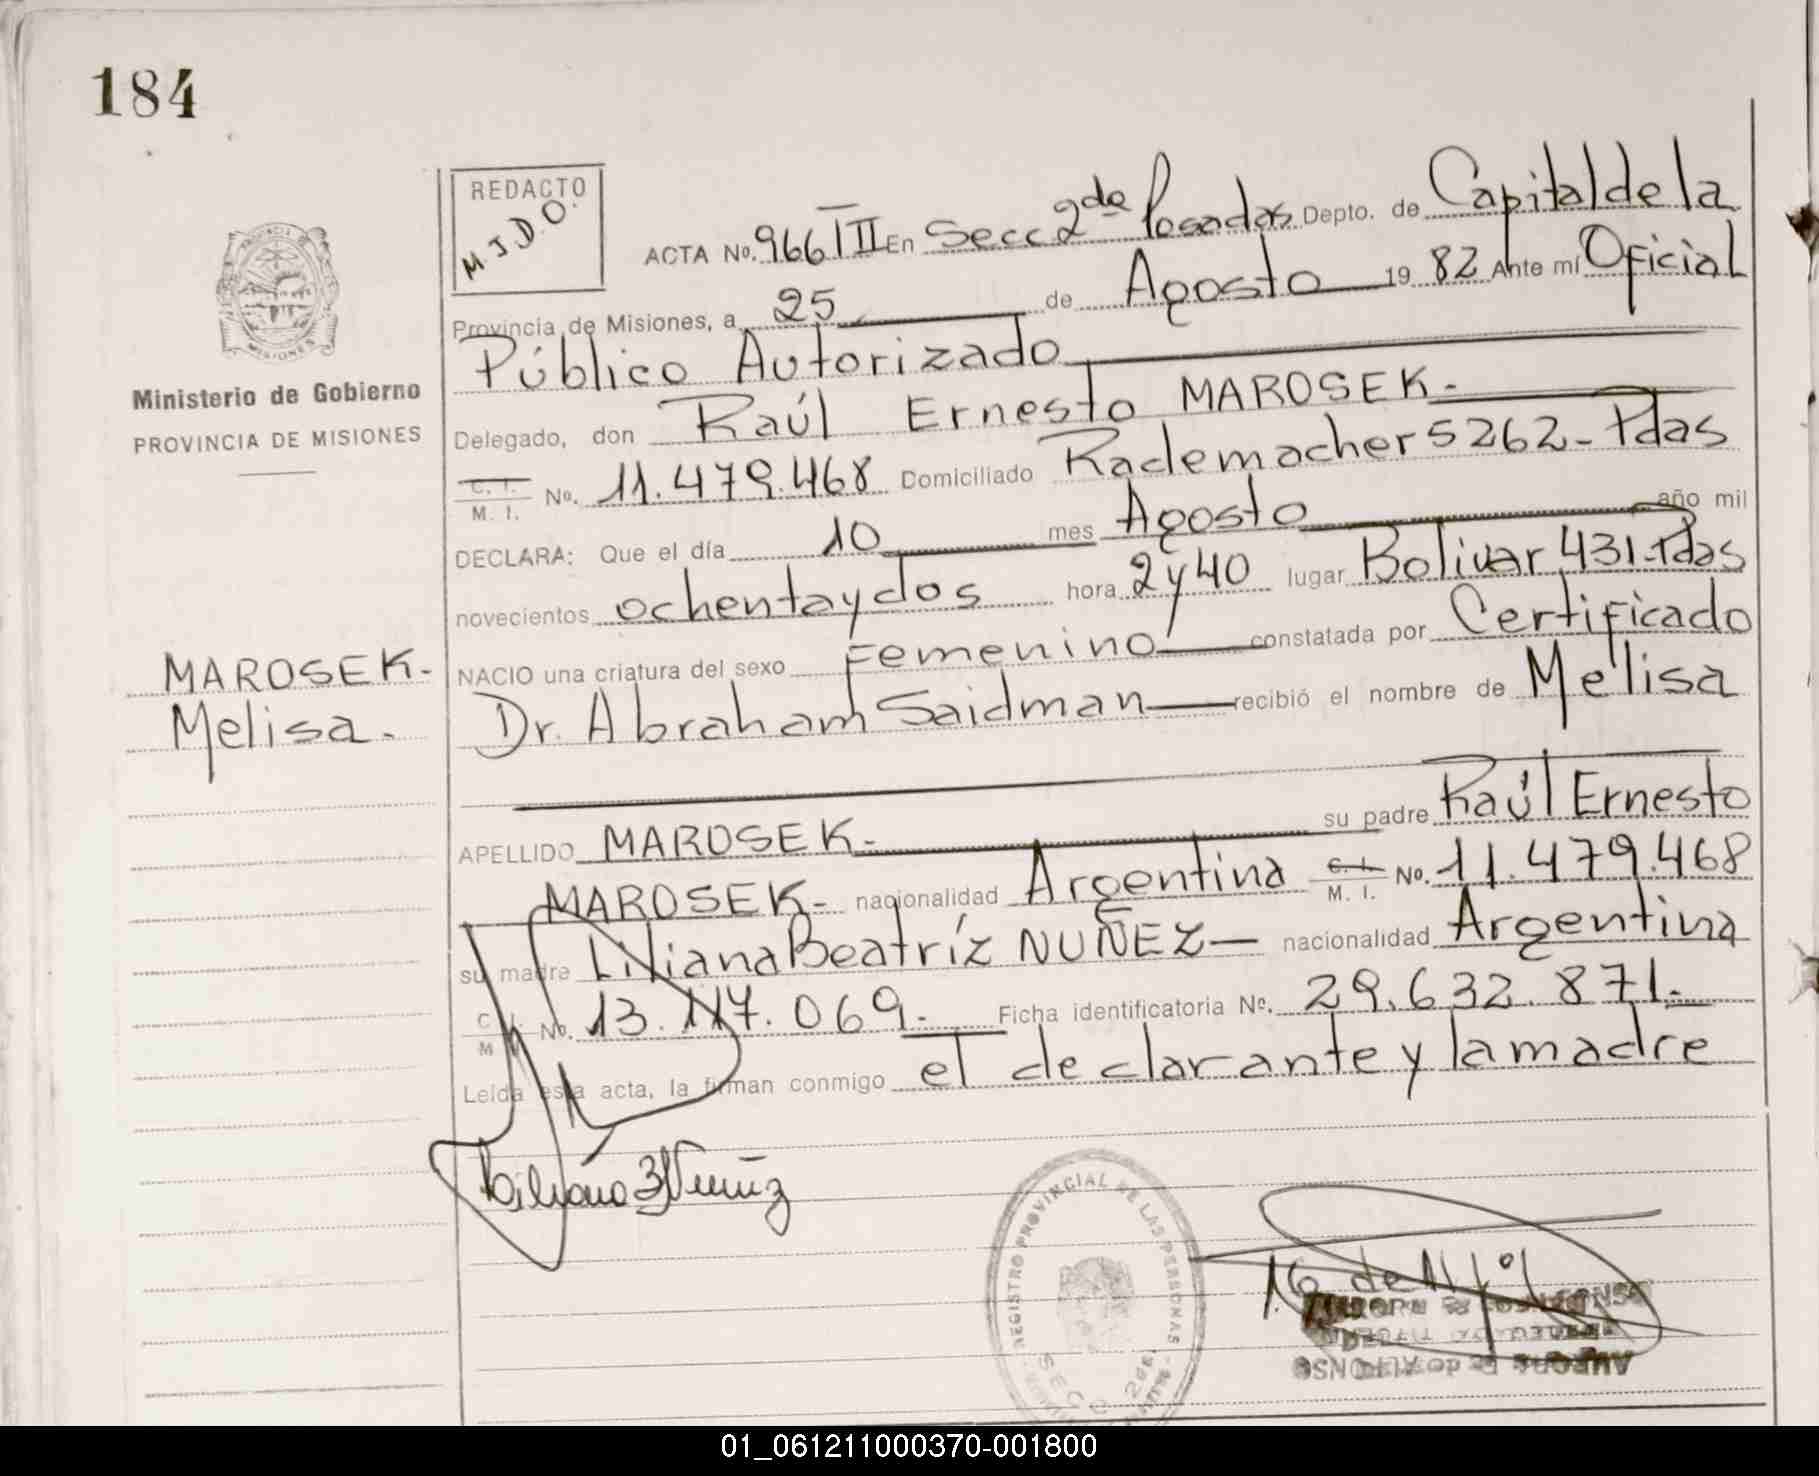 184
REDACTO
M.J.D.O.
ACTA No. 966 TII En Secc 2da Posadas Depto. de Capital de la
Provincia de Misiones, a 25 de Agosto 19 82 Ante mí Oficial
Público Autorizado
Delegado, don Raúl Ernesto MAROSEK.-
C. I.
M. I. No. 11.479.468 Domiciliado Rademacher 5262-Pdas
DECLARA: Que el día 10 mes Agosto año mil
novecientos ochentaydos hora 2y40 lugar Bolivar 431-Pdas
NACIO una criatura del sexo Femenino constatada por Certificado
Dr. Abraham Saidman recibió el nombre de Melisa
APELLIDO MAROSEK.- su padre Raúl Ernesto
MAROSEK- nacionalidad Argentina C. I.
M. I. No. 11.479.468
su madre Liliana Beatríz NUÑEZ- nacionalidad Argentina
C
M No. 13.117.069.- Ficha identificatoria No. 29.632.871.-
Leída esta acta, la firman conmigo el declarante y la madre
Ministerio de Gobierno
PROVINCIA DE MISIONES
MAROSEK-
Melisa.
PROVINCIA DE
MISIONES
Liliana B Nuñez
REGISTRO PROVINCIAL DE LAS PERSONAS
SECC 2da
01_061211000370-001800